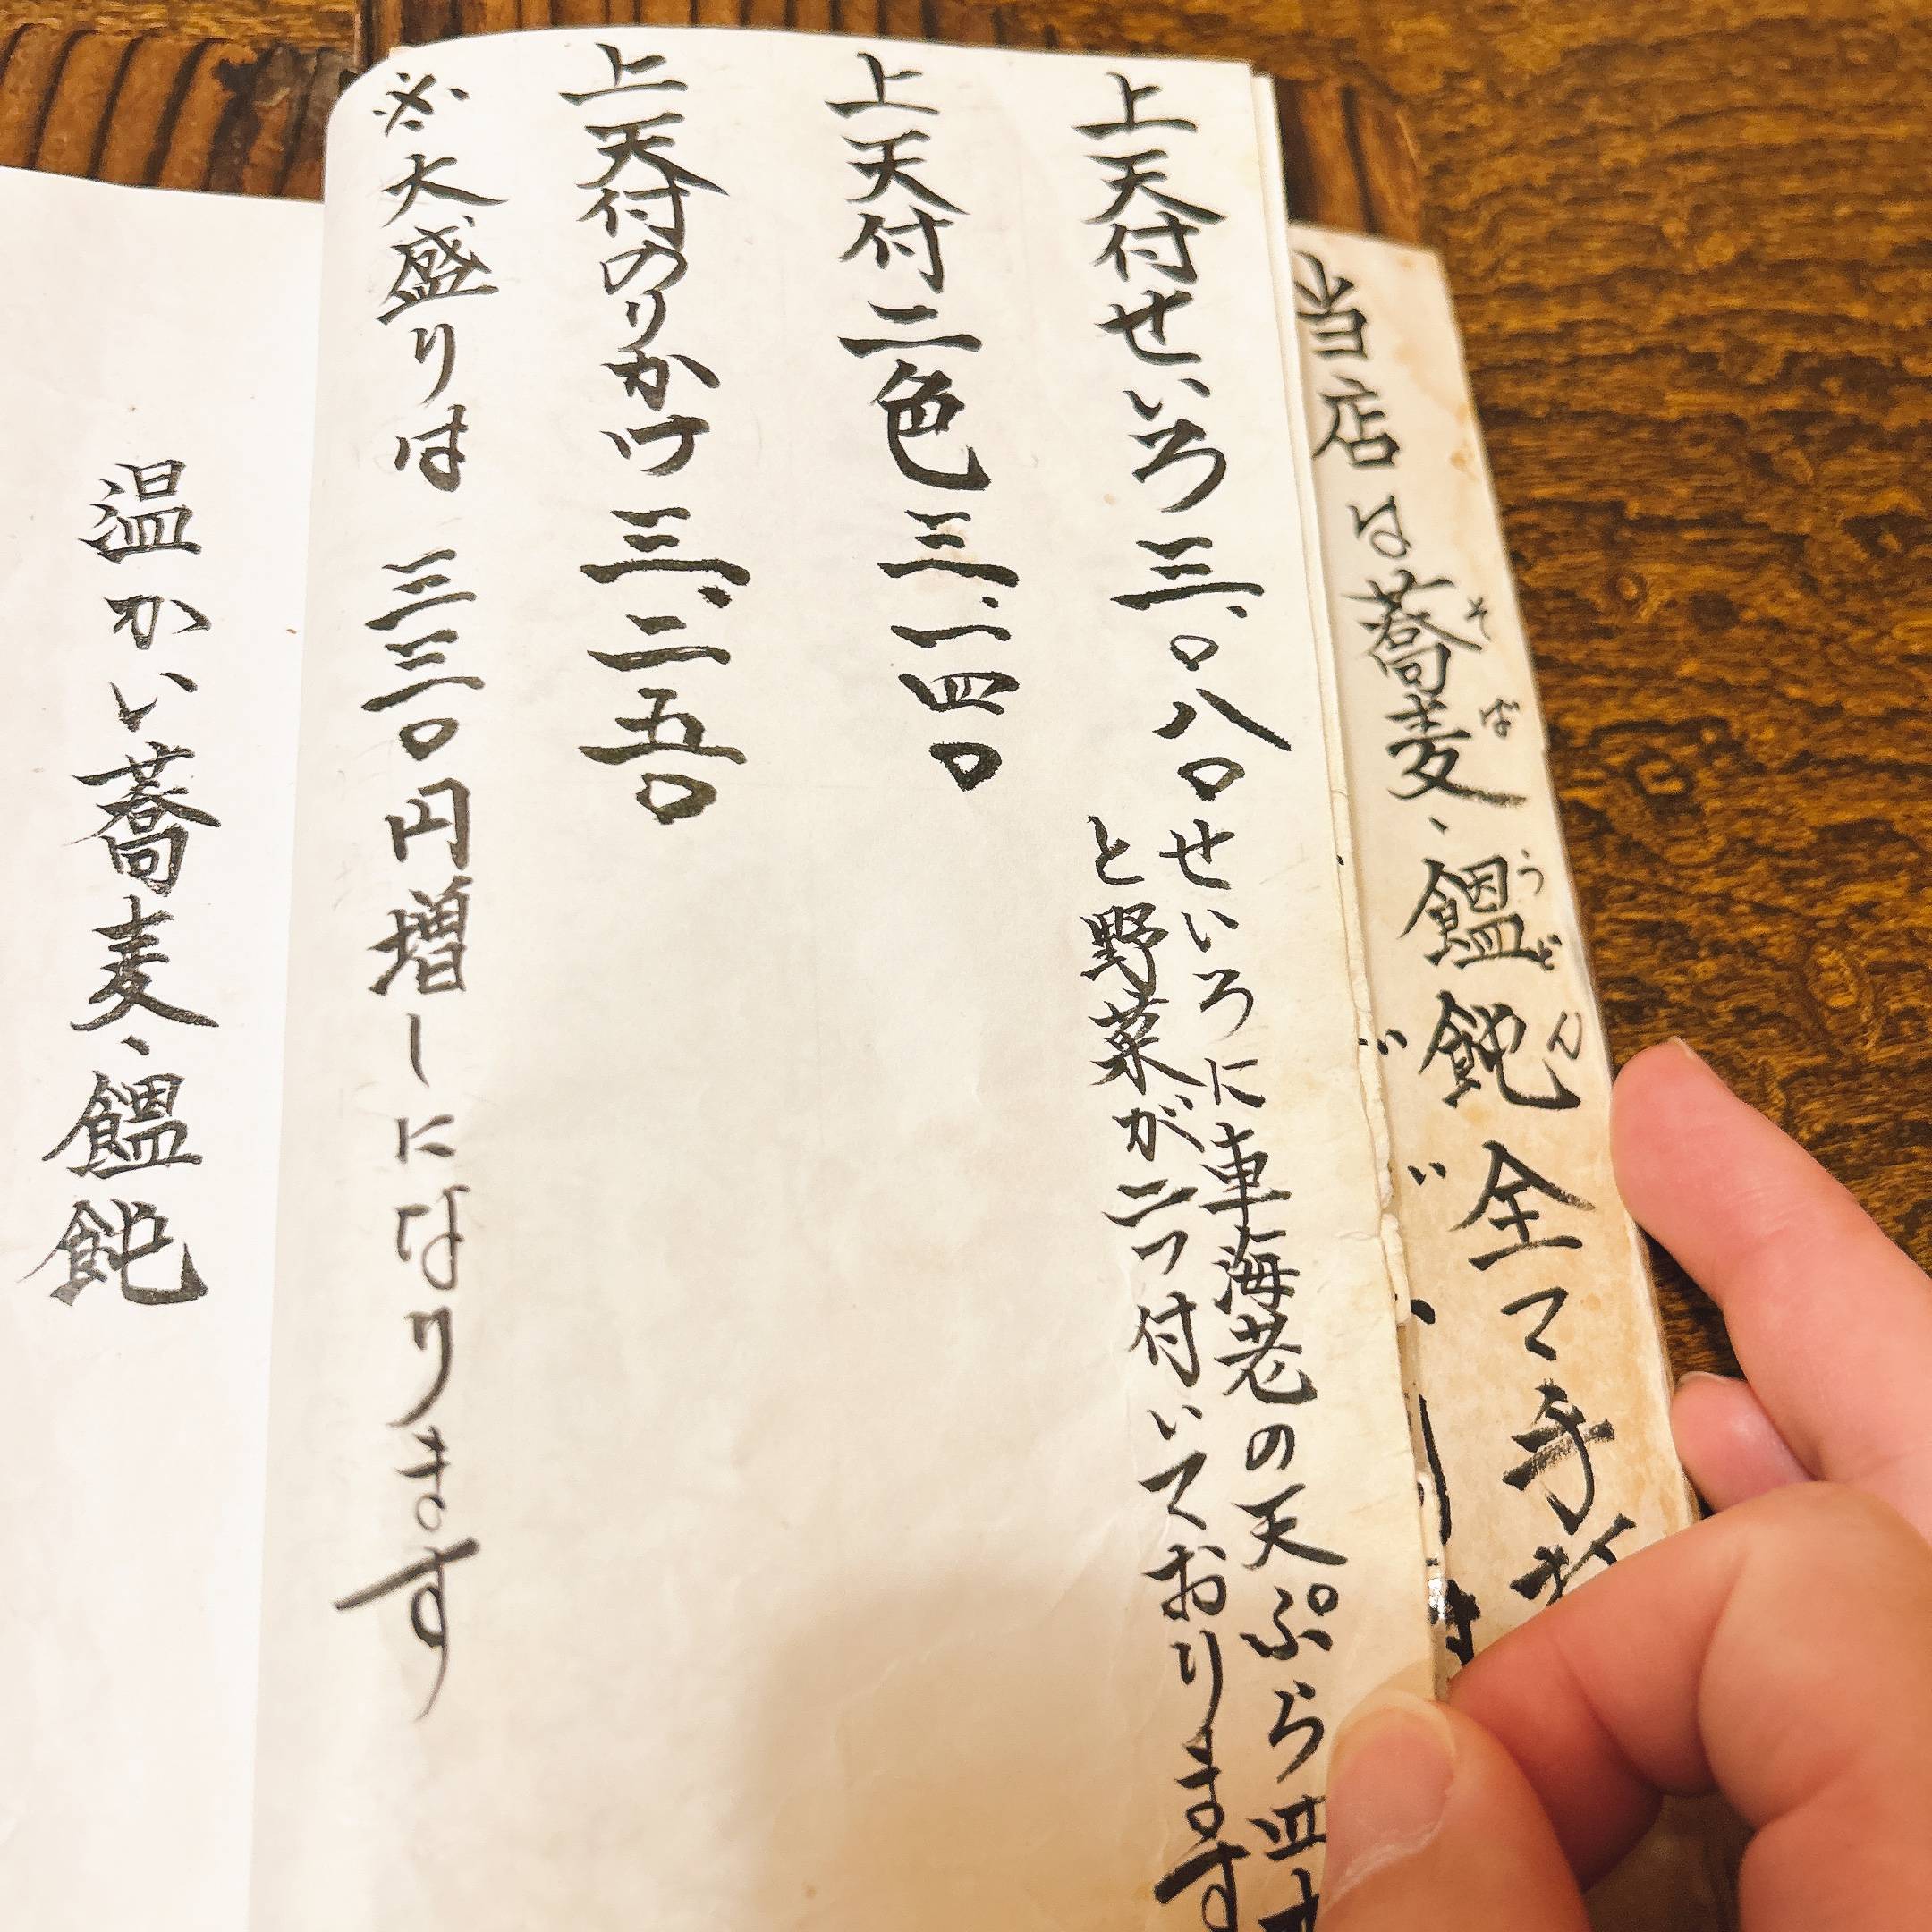 当店は蕎麦、饂飩全て手
そば
うどん
上天付せいろ 三、〇八〇
せいろに車海老の天ぷら四
と野菜が二つ付いております
上天付二色 三、一四〇
上天付のりかけ 三、二五〇
※大盛りは 三三〇円増しになります
温かい蕎麦、饂飩